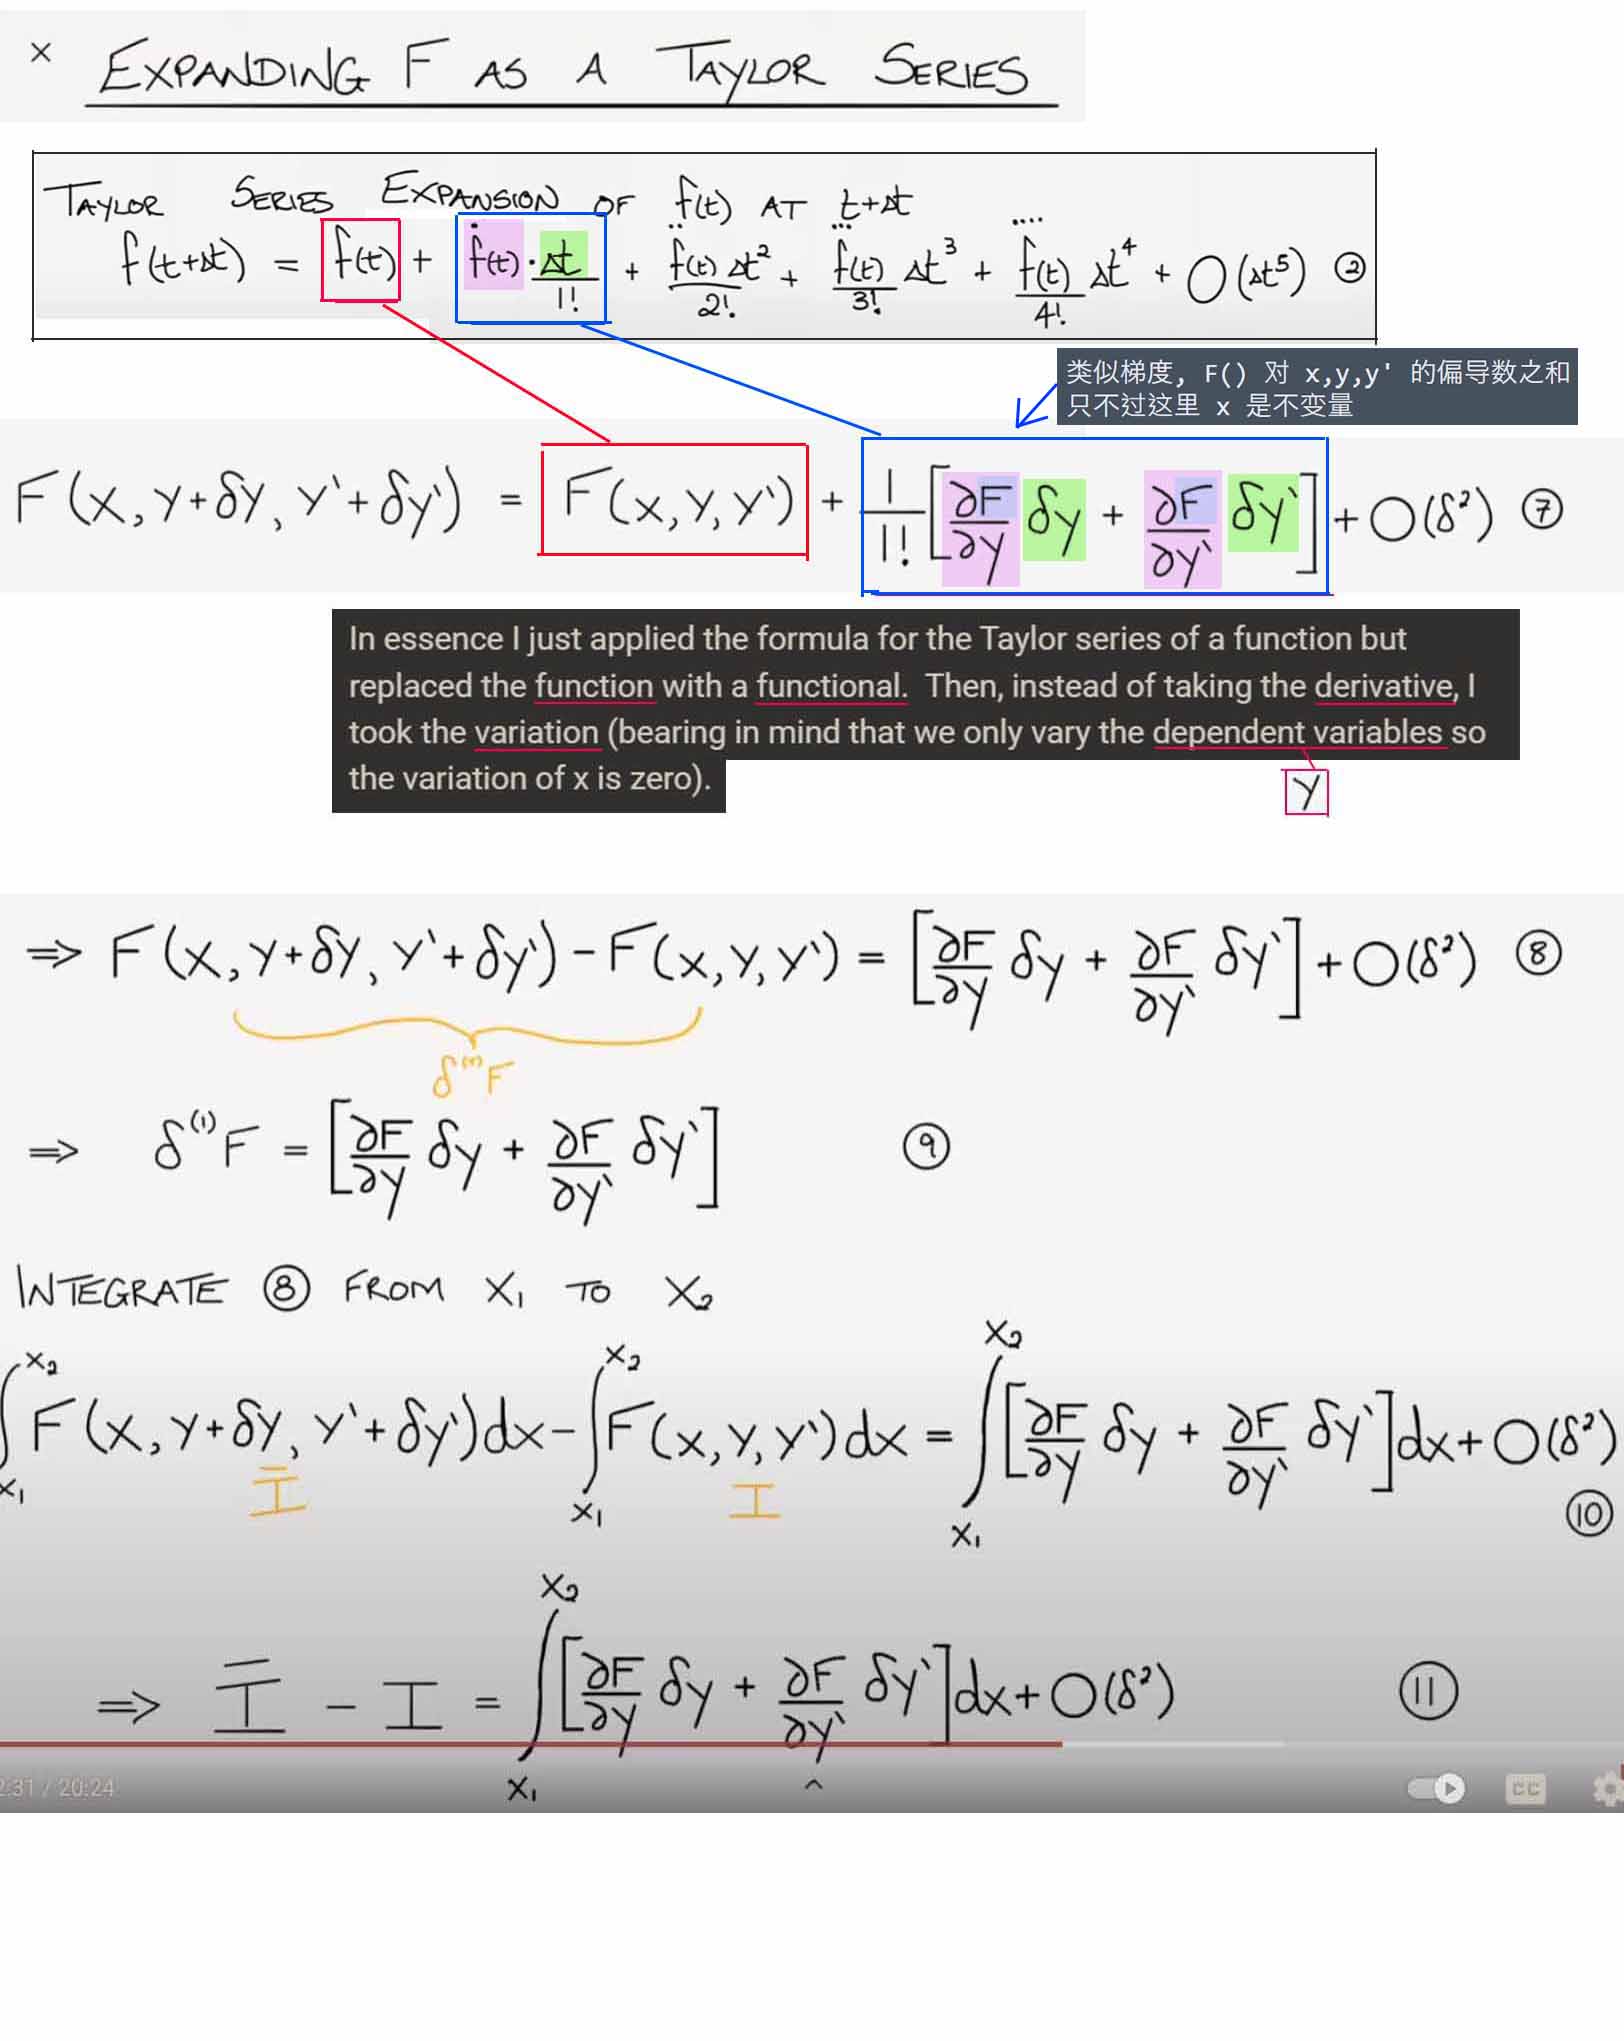 × EXPANDING F AS A TAYLOR SERIES
TAYLOR SERIES EXPANSION OF f(t) AT t+Δt
f(t+Δt) = f(t) + ḟ(t)·Δt/1! + f̈(t)/2! Δt² + f⃛(t)/3! Δt³ + f⃜(t)/4! Δt⁴ + O(Δt⁵) ②
类似梯度, F() 对 x,y,y' 的偏导数之和
只不过这里 x 是不变量
F(x, y+δy, y'+δy') = F(x, y, y') + 1/1! [∂F/∂y δy + ∂F/∂y' δy'] + O(δ²) ⑦
In essence I just applied the formula for the Taylor series of a function but
replaced the function with a functional. Then, instead of taking the derivative, I
took the variation (bearing in mind that we only vary the dependent variables so
the variation of x is zero).
y
⇒ F(x, y+δy, y'+δy') − F(x, y, y') = [∂F/∂y δy + ∂F/∂y' δy'] + O(δ²) ⑧
δ⁽ᵀ⁾F
⇒ δ⁽¹⁾F = [∂F/∂y δy + ∂F/∂y' δy'] ⑨
INTEGRATE ⑧ FROM x₁ TO x₂
∫ₓ₁ˣ² F(x, y+δy, y'+δy')dx − ∫ₓ₁ˣ² F(x, y, y')dx = ∫ₓ₁ˣ² [∂F/∂y δy + ∂F/∂y' δy']dx + O(δ²)
Ī I ⑩
⇒ Ī − I = ∫ₓ₁ˣ² [∂F/∂y δy + ∂F/∂y' δy']dx + O(δ²) ⑪
2:31 / 20:24
CC